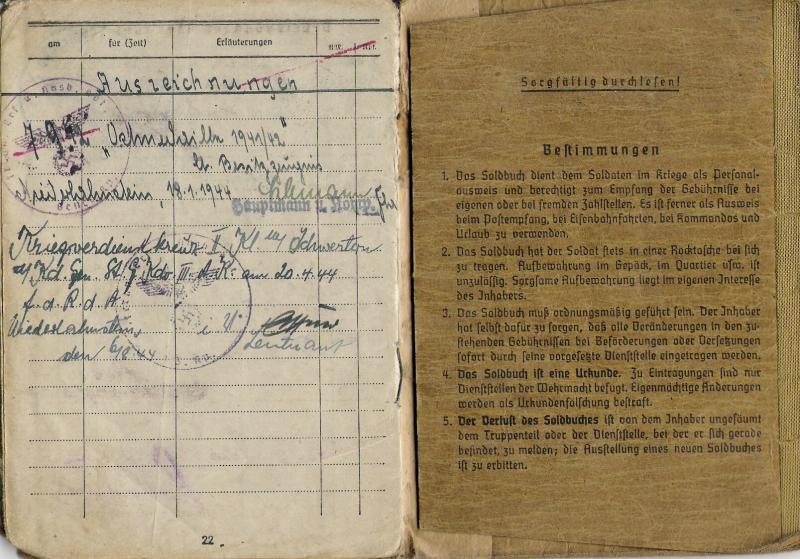 am für (Zeit) Erläuterungen
Auszeichnungen
7.9.42 "Ostmedaille 1941/42"
lt. Besitzzeugnis
18.1.1944
Hauptmann u. Komp.
Kriegsverdienstkreuz II. Kl m/ Schwertern
Kdo III. A.K. am 20.4.44
f. d. R. d. A.
i. V.
den 6/8.44 Leutnant
22
Sorgfältig durchlesen!
Bestimmungen
1. Das Soldbuch dient dem Soldaten im Kriege als Personal-
ausweis und berechtigt zum Empfang der Gebührnisse bei
eigenen oder bei fremden Zahlstellen. Es ist ferner als Ausweis
beim Postempfang, bei Eisenbahnfahrten, bei Kommandos und
Urlaub zu verwenden.
2. Das Soldbuch hat der Soldat stets in einer Rocktasche bei sich
zu tragen. Aufbewahrung im Gepäck, im Quartier usw. ist
unzulässig. Sorgsame Aufbewahrung liegt im eigenen Interesse
des Inhabers.
3. Das Soldbuch muß ordnungsmäßig geführt sein. Der Inhaber
hat selbst dafür zu sorgen, daß alle Veränderungen in den zu-
stehenden Gebührnissen bei Beförderungen oder Versetzungen
sofort durch seine vorgesetzte Dienststelle eingetragen werden.
4. Das Soldbuch ist eine Urkunde. Zu Eintragungen sind nur
Dienststellen der Wehrmacht befugt. Eigenmächtige Änderungen
werden als Urkundenfälschung bestraft.
5. Der Verlust des Soldbuches ist von dem Inhaber ungesäumt
dem Truppenteil oder der Dienststelle, bei der er sich gerade
befindet, zu melden; die Ausstellung eines neuen Soldbuches
ist zu erbitten.